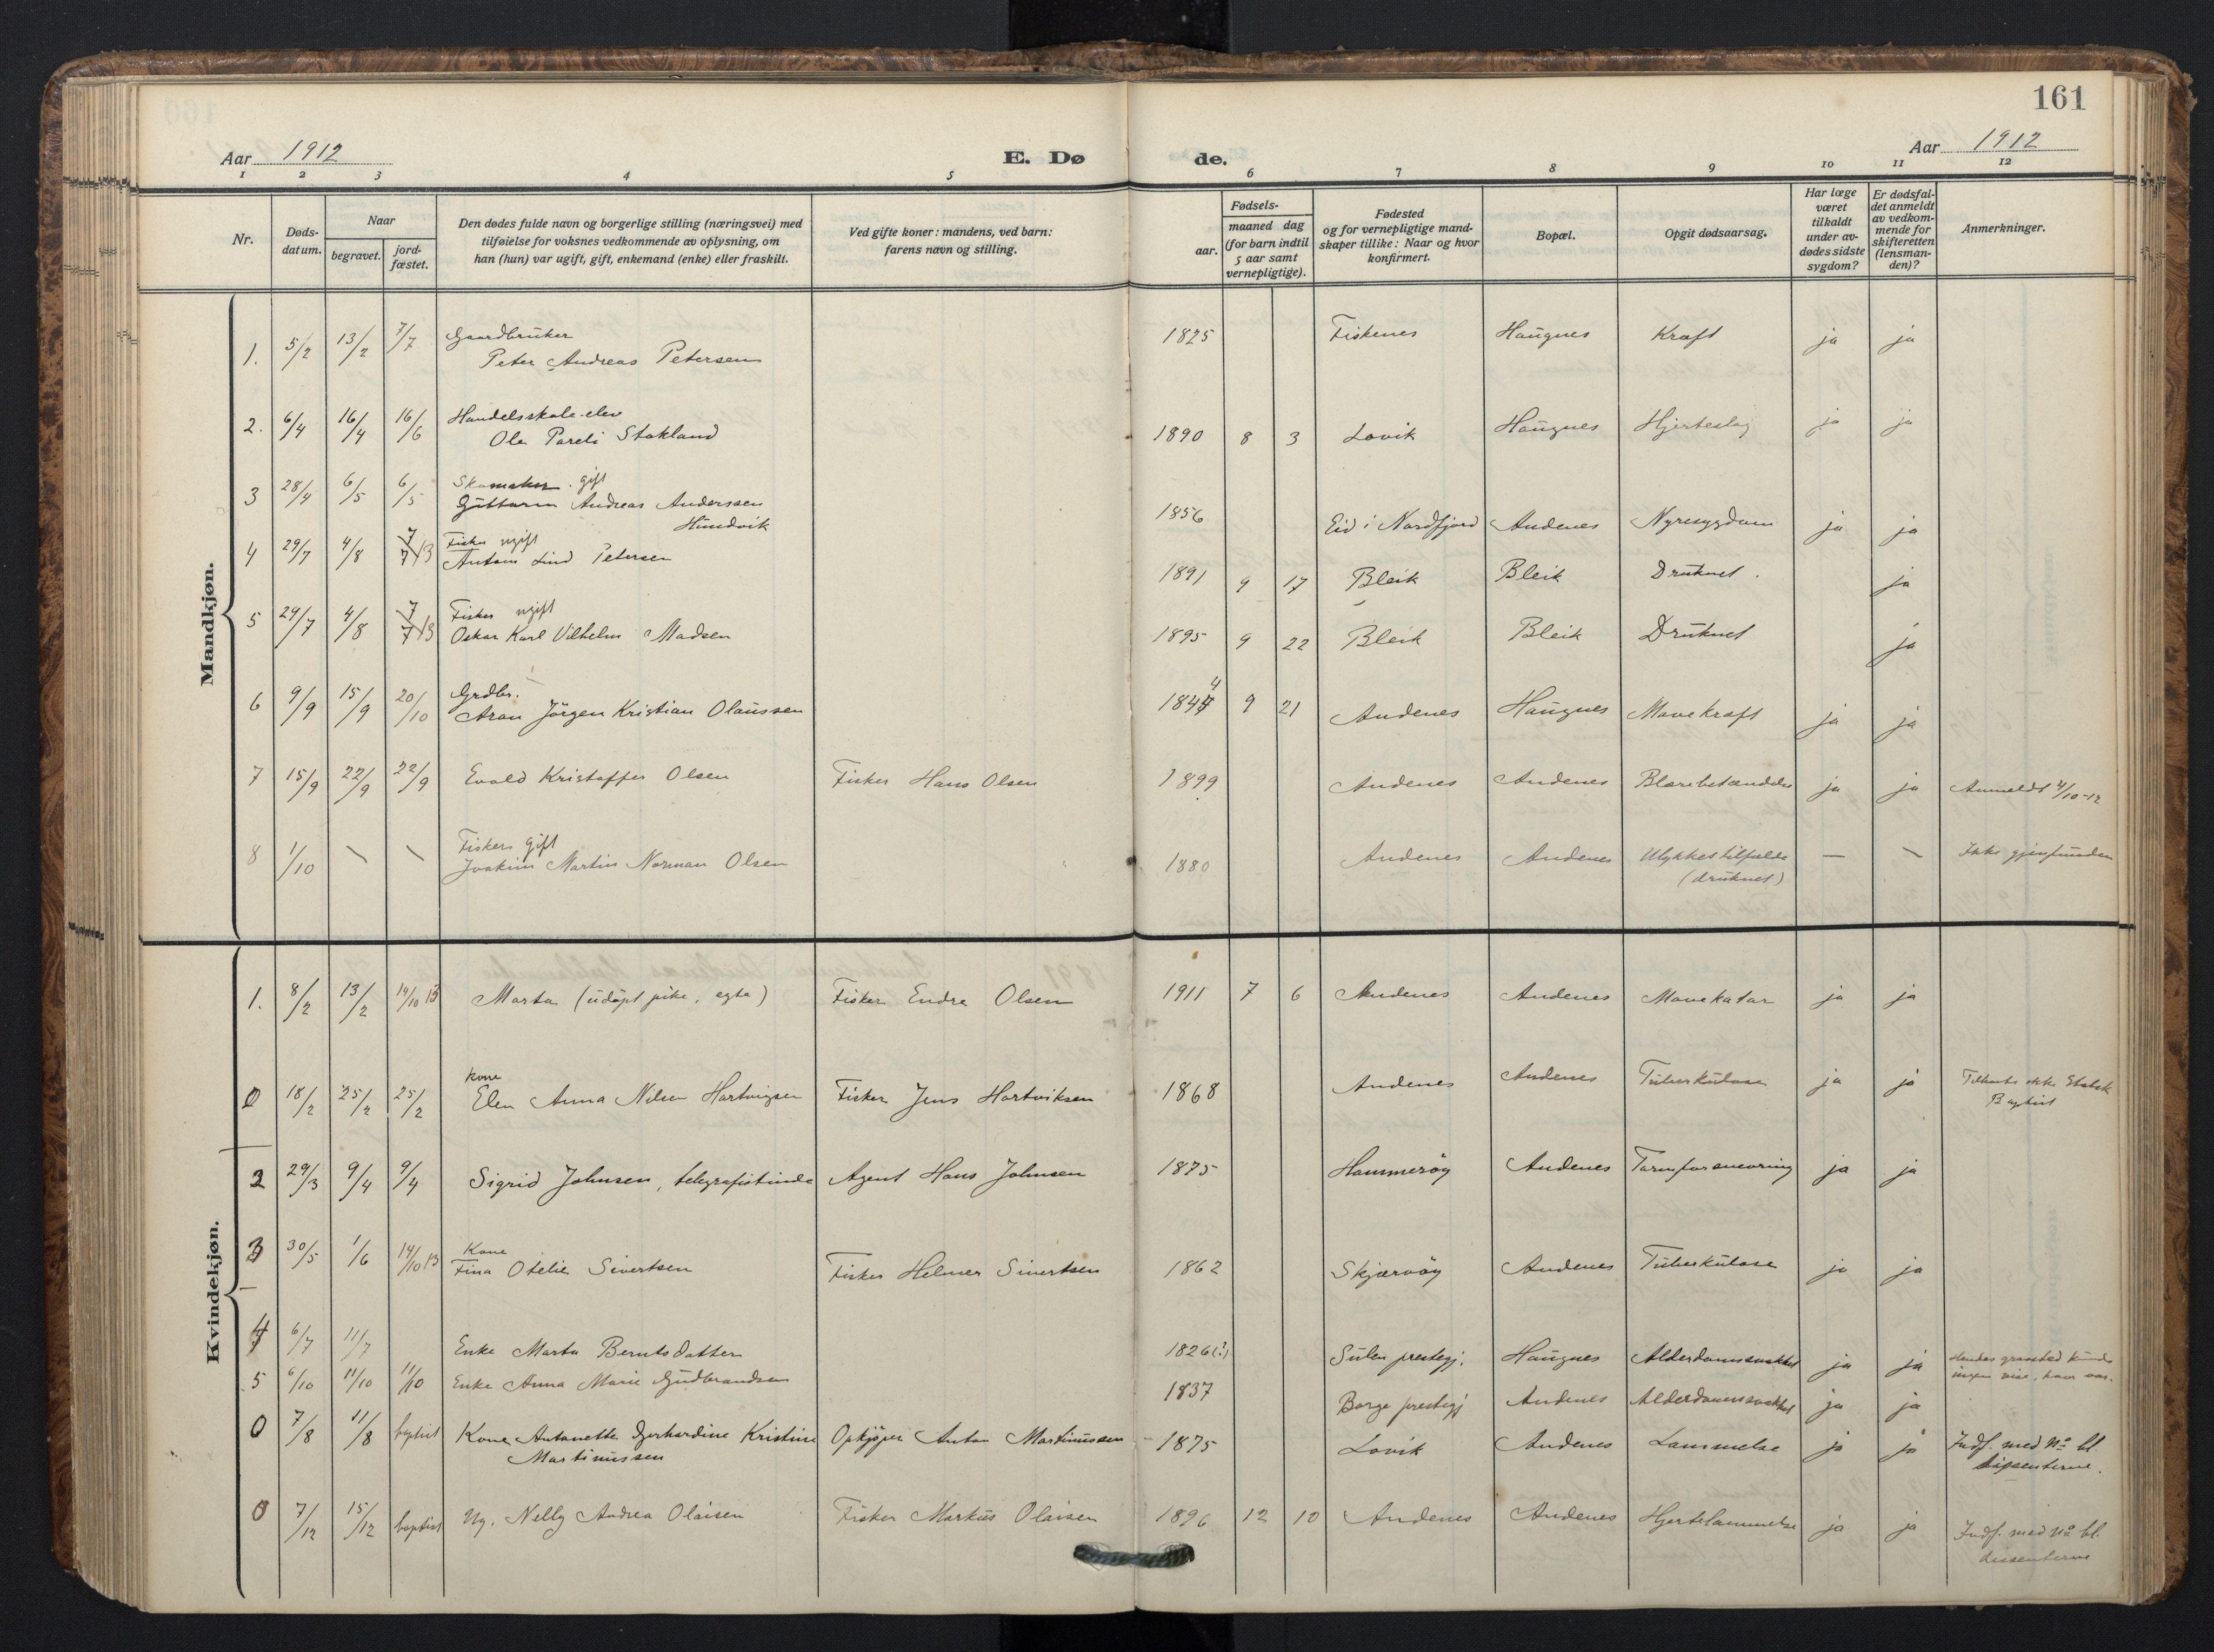 161
Aar 1912
E. Dø de.
Aar 1912
1 2 3 4 5 6 7 8 9 10 11 12
Nr.
Døds-datum.
Naar
begravet.
jord-fæstet.
Den dødes fulde navn og borgerlige stilling (næringsvei) med
tilføielse for voksnes vedkommende av oplysning, om
han (hun) var ugift, gift, enkemand (enke) eller fraskilt.
Ved gifte koner: mandens, ved barn:
farens navn og stilling.
Fødsels-
aar.
maaned dag
(for barn indtil
5 aar samt
vernepligtige).
Fødested
og for vernepligtige mand-
skaper tillike: Naar og hvor
konfirmert.
Bopæl.
Opgit dødsaarsag.
Har læge
været
tilkaldt
under av-
dødes sidste
sygdom?
Er dødsfal-
det anmeldt
av vedkom-
mende for
skifteretten
(lensman-
den)?
Anmerkninger.
Mandkjøn.
1. 5/2 13/2 7/7 Gaardbruker
Peter Andreas Petersen 1825 Fiskenes Haugnes Kræft ja ja
2. 6/4 16/4 16/6 Handelsskole-elev
Ole Pareli Stokland 1890 8 3 Lovik Haugnes Hjerteslag ja ja
3 28/4 6/5 6/5 Skomaker. gift
Guttorm Andreas Anderssen
Hundvik 1856 Eid i Nordfjord Andenes Nyresygdom ja ja
4 29/7 4/8 7/7 13 Fisker ugift
Antoni Lind Petersen 1891 9 17 Bleik Bleik Druknet. ja
5 29/7 4/8 7/7 13 Fisker ugift
Oskar Karl Vilhelm Madsen 1895 9 22 Bleik Bleik Druknet ja
6 9/9 15/9 20/10 Grdbr.
Aron Jörgen Kristian Olaussen 1844 9 21 Andenes Haugnes Mavekræft ja ja
7 15/9 22/9 22/9 Evald Kristoffer Olsen Fisker Hans Olsen 1899 Andenes Andenes Blærebetændelse ja ja Anmeldt 4/10-12
8 1/10 — — Fisker gift
Joakim Martin Norman Olsen 1880 Andenes Andenes Ulykkestilfælde
(druknet) — — Ikke gjenfunden
Kvindekjøn.
1. 8/2 13/2 14/10 13 Marta (udöpt pike, egte) Fisker Endre Olsen 1911 7 6 Andenes Andenes Mavekatar ja ja
0 18/2 25/2 25/2 Kone
Elen Anna Nilsen Hartvigsen Fisker Jens Hartviksen 1868 Andenes Andenes Tuberkulose ja ja Tilhørte ikke Statsk
Baptist
2 29/3 9/4 9/4 Sigrid Johnsen, telegrafistinde Agent Hans Johnsen 1875 Hammeröy Andenes Tarmforsnevring ja ja
3 30/5 1/6 14/10 13 Kone
Fina Otelie Sivertsen Fisker Helmer Sivertsen 1862 Skjærvöy Andenes Tuberkulose ja ja
4 6/7 11/7 Enke Marta Berntsdatter 1826(?) Sulen prestegj. Haugnes Alderdomssvakhet ja ja Hendes kunde
ingen vise,
5 6/10 11/10 11/10 Enke Anna Marie Gudbrandsen 1837 Borge prestegj Andenes Alderdomssvakhet ja ja
0 7/8 11/8 baptist Kone Antonette Gerhardine Kristine
Martinussen Opkjöper Anton Martinussen 1875 Lovik Andenes Lammelse ja ja Indf. med No bl.
dissenterne.
0 7/12 15/12 baptist Ug. Nelly Andrea Olaisen Fisker Markus Olaisen 1896 12 10 Andenes Andenes Hjertelammelse ja ja Indf. med No bl.
dissenterne